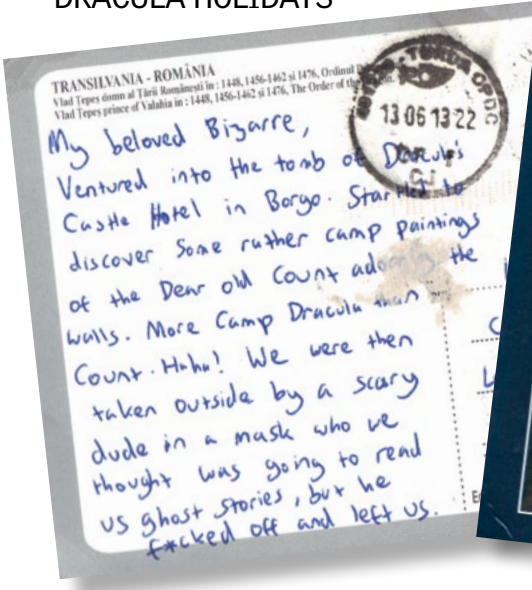 DRACULA HOLIDAYS
TRANSILVANIA - ROMÂNIA
Vlad Țepeș domn al Țării Românești în : 1448, 1456-1462 și 1476, Ordinul
Vlad Țepeș prince of Valahia in : 1448, 1456-1462 și 1476, The Order of the
TURDA
13 06 13 22
CJ
My beloved Bizarre,
Ventured into the tomb of Dracula's
Castle Hotel in Borgo. Startled to
discover some rather camp paintings
of the Dear old Count adorning the
walls. More Camp Dracula than
Count. Haha! We were then
taken outside by a scary
dude in a mask who we
thought was going to read
us ghost stories, but he
f*cked off and left us.